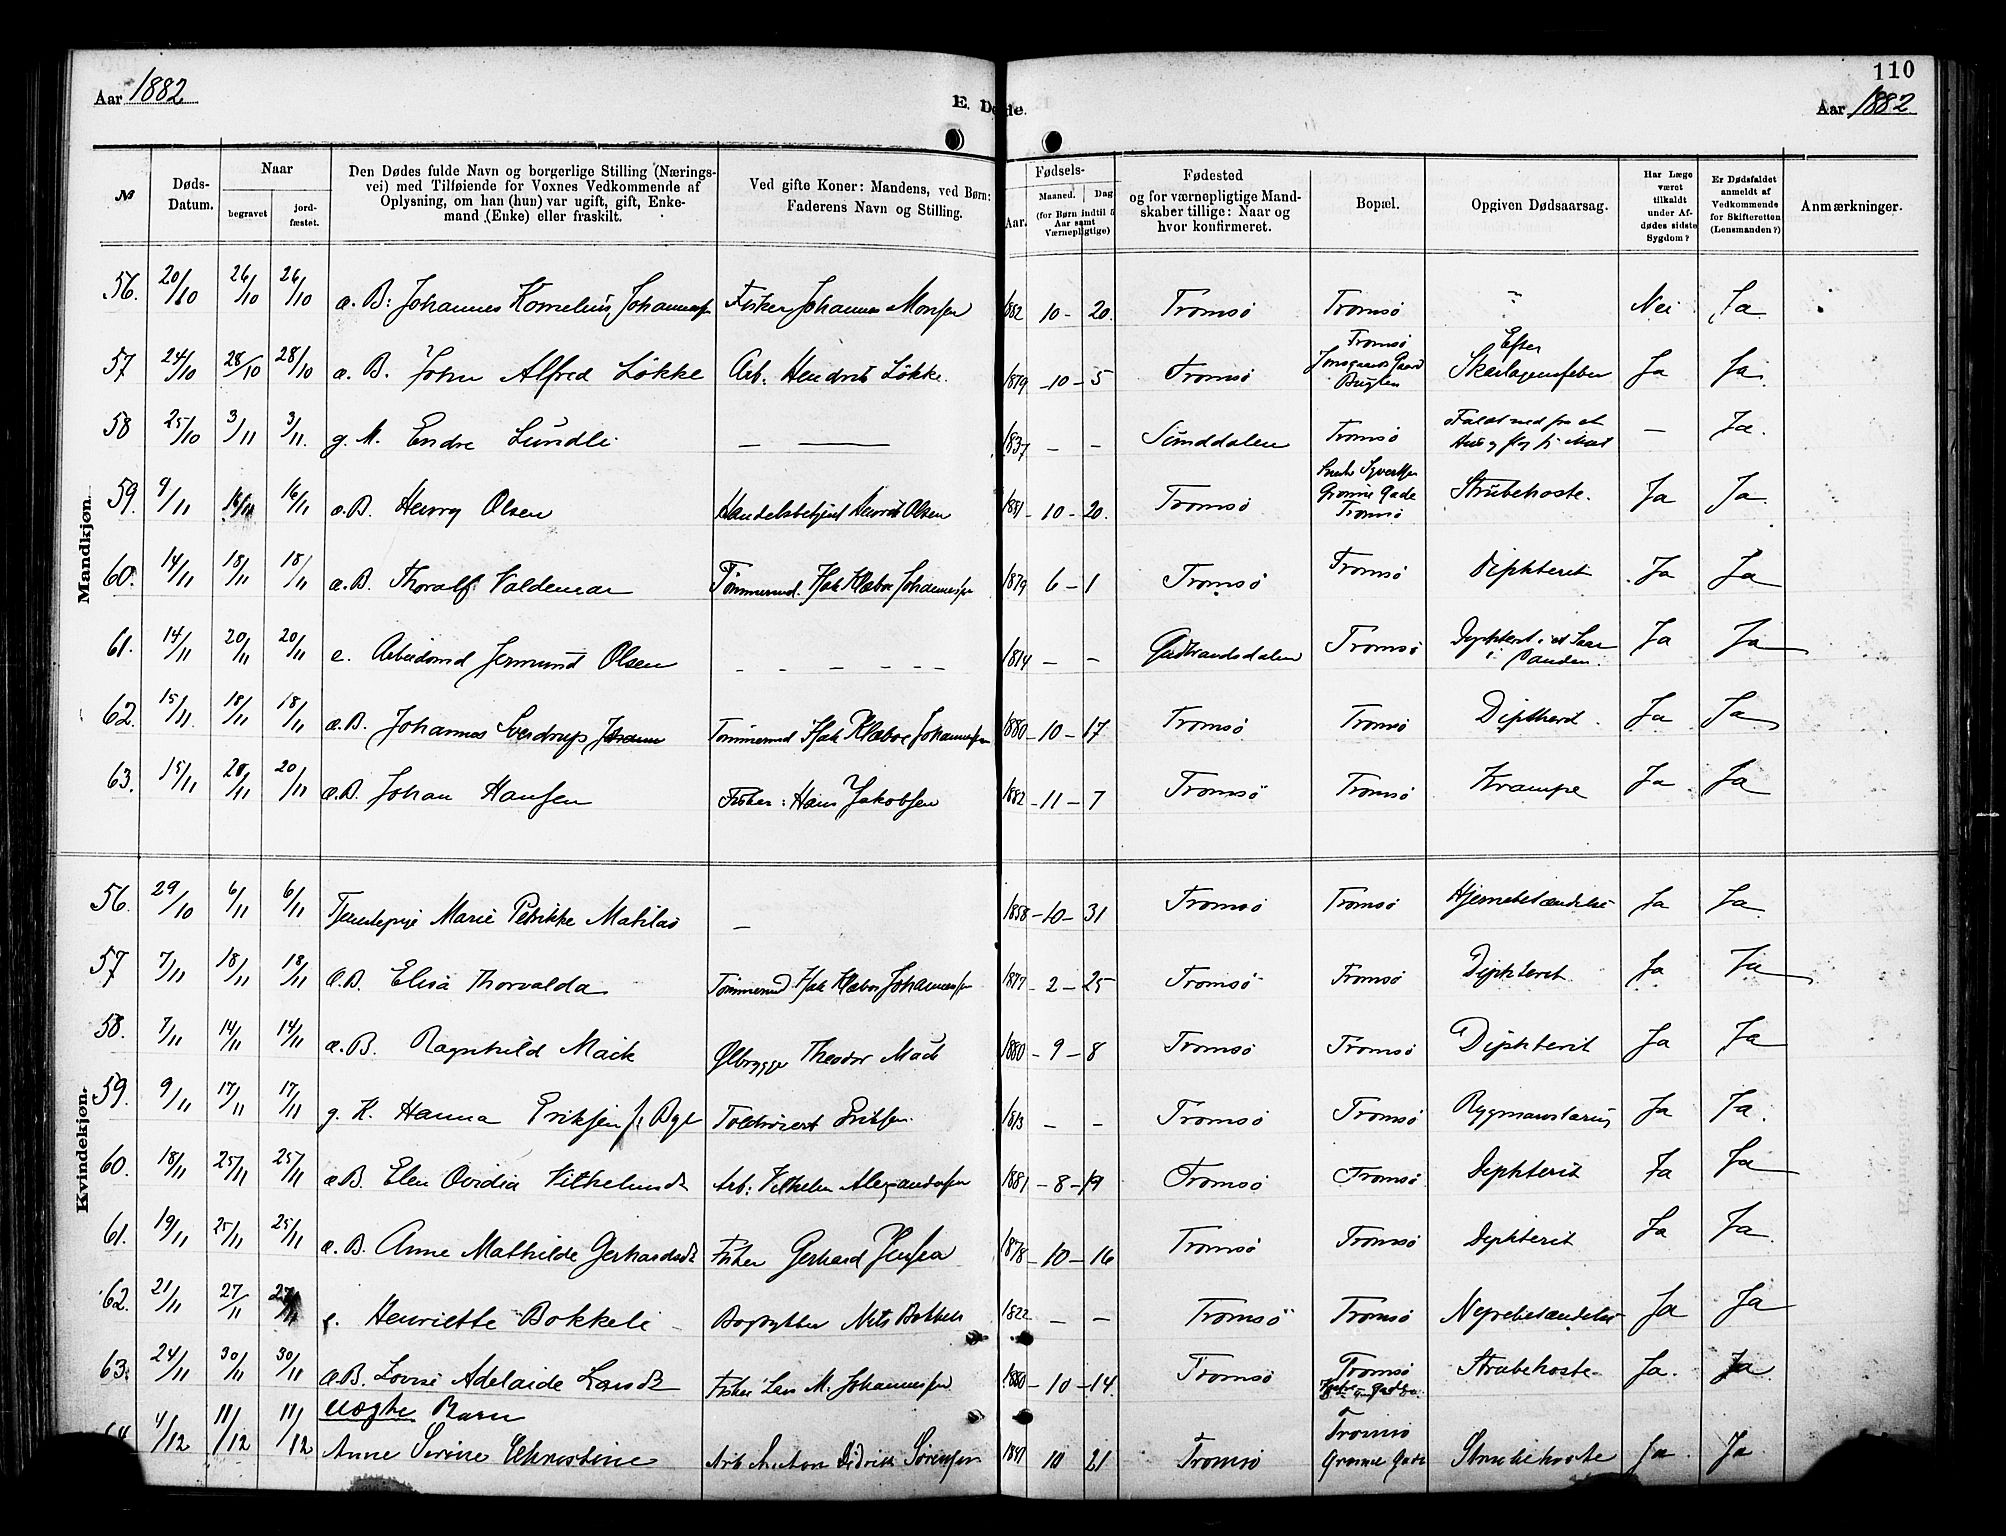 110
Aar 1882
E. Døde.
Aar 1882.
№
Døds-Datum.
Naar
begravet
jordfæstet.
Den Dødes fulde Navn og borgerlige Stilling (Næringsvei) med Tilføiende for Voxnes Vedkommende af Oplysning, om han (hun) var ugift, gift, Enkemand (Enke) eller fraskilt.
Ved gifte Koner: Mandens, ved Børn: Faderens Navn og Stilling.
Fødsels-
Aar.
Maaned.
Dag
(for Børn indtil 5 Aar samt Værnepligtige)
Fødested og for værnepligtige Mandskaber tillige: Naar og hvor konfirmeret.
Bopæl.
Opgiven Dødsaarsag.
Har Læge været tilkaldt under Afdødes sidste Sygdom?
Er Dødsfaldet anmeldt af Vedkommende for Skifteretten (Lensmanden?)
Anmærkninger.
Mandkjøn.
56. 20/10 26/10 26/10 æ. B: Johannes Kornelius Johannessen Fisker Johannes Monsen 1882 10 - 20. Tromsø Tromsø " Nei Ja
57 24/10 28/10 28/10 æ. B. John Alfred Løkke Arb: Hendrik Løkke. 1879 - 10 - 5 Tromsø Tromsø Gaard Efter Skarlagensfeber Ja Ja.
58 25/10 3/11 3/11. g. M. Endre Lundli — — 1837 - - Sunddalen Tromsø Faldt ned fra et — Ja.
59. 9/11 16/11 16/11 æ. B. Henry Olsen Handelsbetjent Henrik Olsen 1881 - 10 - 20. Tromsø Grønne Gade Tromsø Strubehoste. Ja Ja.
60. 14/11 18/11 18/11 æ. B. Thoralf Valdemar Tømmermd. Isak Klæboe Johannessen 1879 6 - 1 Tromsø Tromsø Diphterit Ja Ja
61. 14/11 20/11 20/11 e. Arbeidsmd Jermund Olsen - - - - - - 1814 - - Gudbrandsdalen Tromsø Diphterit i et Saar i Panden. Ja Ja
62. 15/11. 18/11 18/11 æ. B. Johannes Sverdrup Tømmermd Isak Klæboe Johannessen 1880 - 10 - 17 Tromsø Tromsø Diphterit. Ja Ja
63. 15/11 20/11 20/11 æ. B. Johan Hansen Fisker: Hans Jakobsen 1882 - 11 - 7 Tromsø Tromsø Krampe Ja Ja
Kvindekjøn.
56. 29/10 6/11 6/11 Tjenestepige Marie Petrikke Matilas — 1858 - 10 - 31 Tromsø Tromsø Hjernebetændelse Ja Ja
57 7/11 18/11 18/11 æ. B. Elisa Thorvalda Tømmermd Isak Klæboe Johannessen 1877 - 2 - 25 Tromsø Tromsø Diphterit Ja Ja
58. 7/11 14/11 14/11 æ. B. Ragnhild Mack Ølbrygger Theodor Mack 1880 - 9 - 8 Tromsø Tromsø Diphterit Ja Ja
59. 9/11 17/11 17/11 g. K. Hanna Eriksen f. Toldvisert Eriksen. 1813 - - Tromsø Tromsø Rygmarvstæring Ja Ja.
60. 18/11 25/11 25/11 æ. B. Elen Ovidia Vilhelmsdt Arb: Vilhelm Alexandersen 1881 - 8 - 19 Tromsø Tromsø Diphterit Ja Ja
61. 19/11 25/11 25/11 æ. B. Anne Mathilde Gerhardsdt Fisker Gerhard Jensen 1878 - 10 - 16 Tromsø Tromsø Diphterit Ja Ja.
62. 21/11 27/11 27/11 e. Henriette Bokkeli - Bogtrykker Nils Bokkeli 1822 - - Tromsø Tromsø Nyrebetændelse Ja Ja
63. 24/11 30/11 30/11 æ. B. Lovise Adelaide Larsdt Fisker Lars M. Johannessen 1880 - 10 - 14. Tromsø Tromsø Strubehoste Ja. Ja.
64 4/12 11/12 11/12 uægte Barn Anne Serine Christine Arb Anton Didrik Sørensen 1881 10 21 Tromsø Tromsø Grønne Gade Strubehoste Ja. Ja